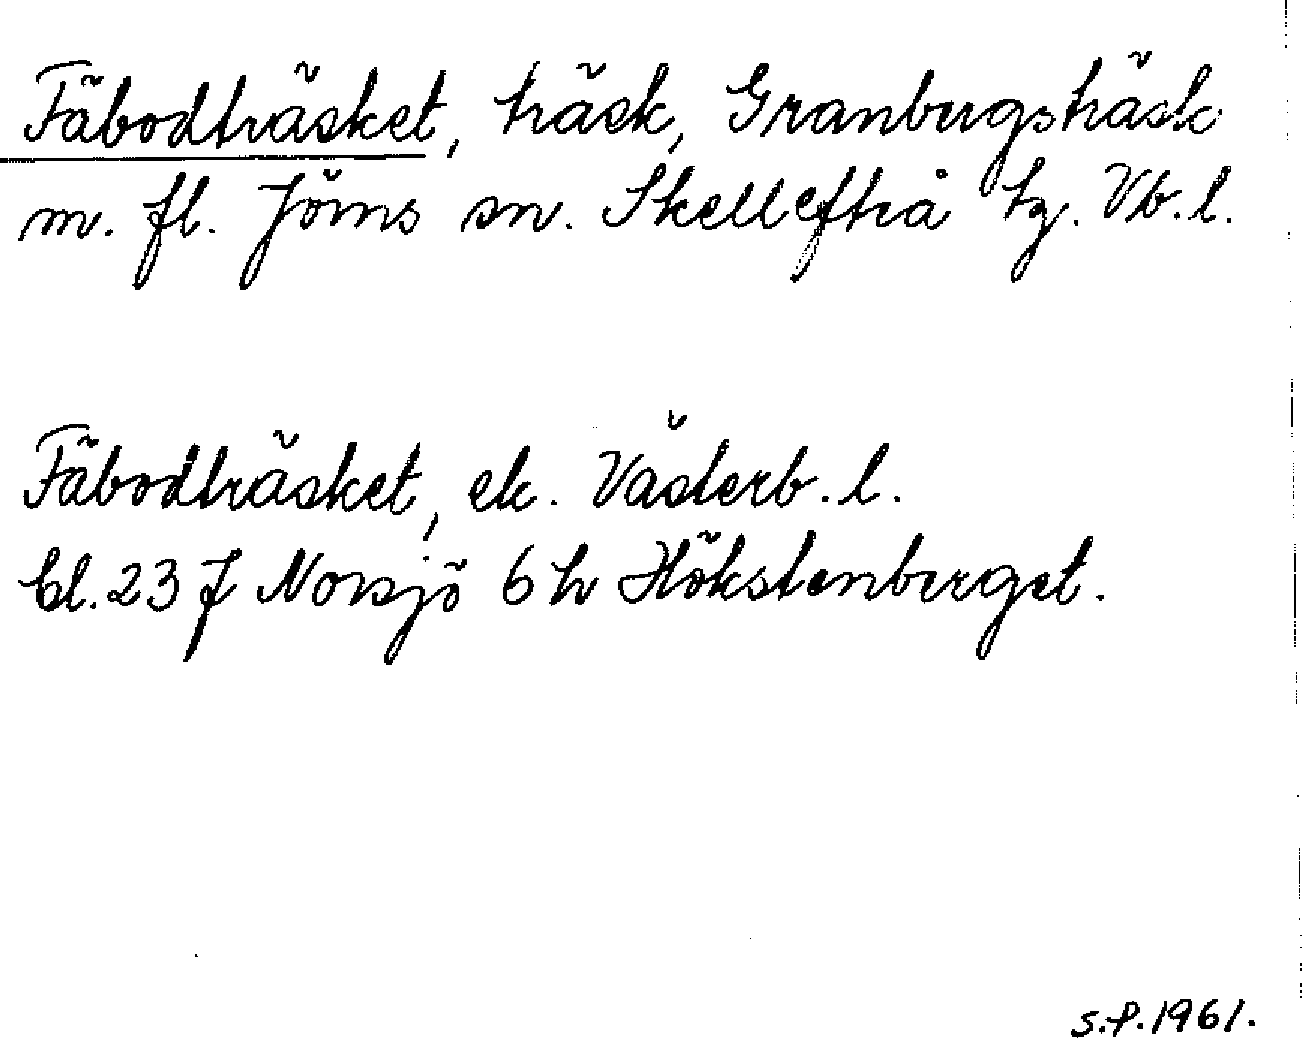 Fäbodträsket, träsk, Granbergsträsk
m. fl. Jörns sn. Skellefteå tg. Vb. l.
Fäbodträsket, ek. Västerb. l.
bl. 23 J Norsjö 6 h Hökstenberget.
S.P. 1961.